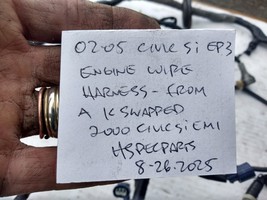 02-05 CIVIC Si EP3
ENGINE WIRE
HARNESS - FROM
A K SWAPPED
2000 CIVIC Si EM1
HSPECPARTS
8-26-2025